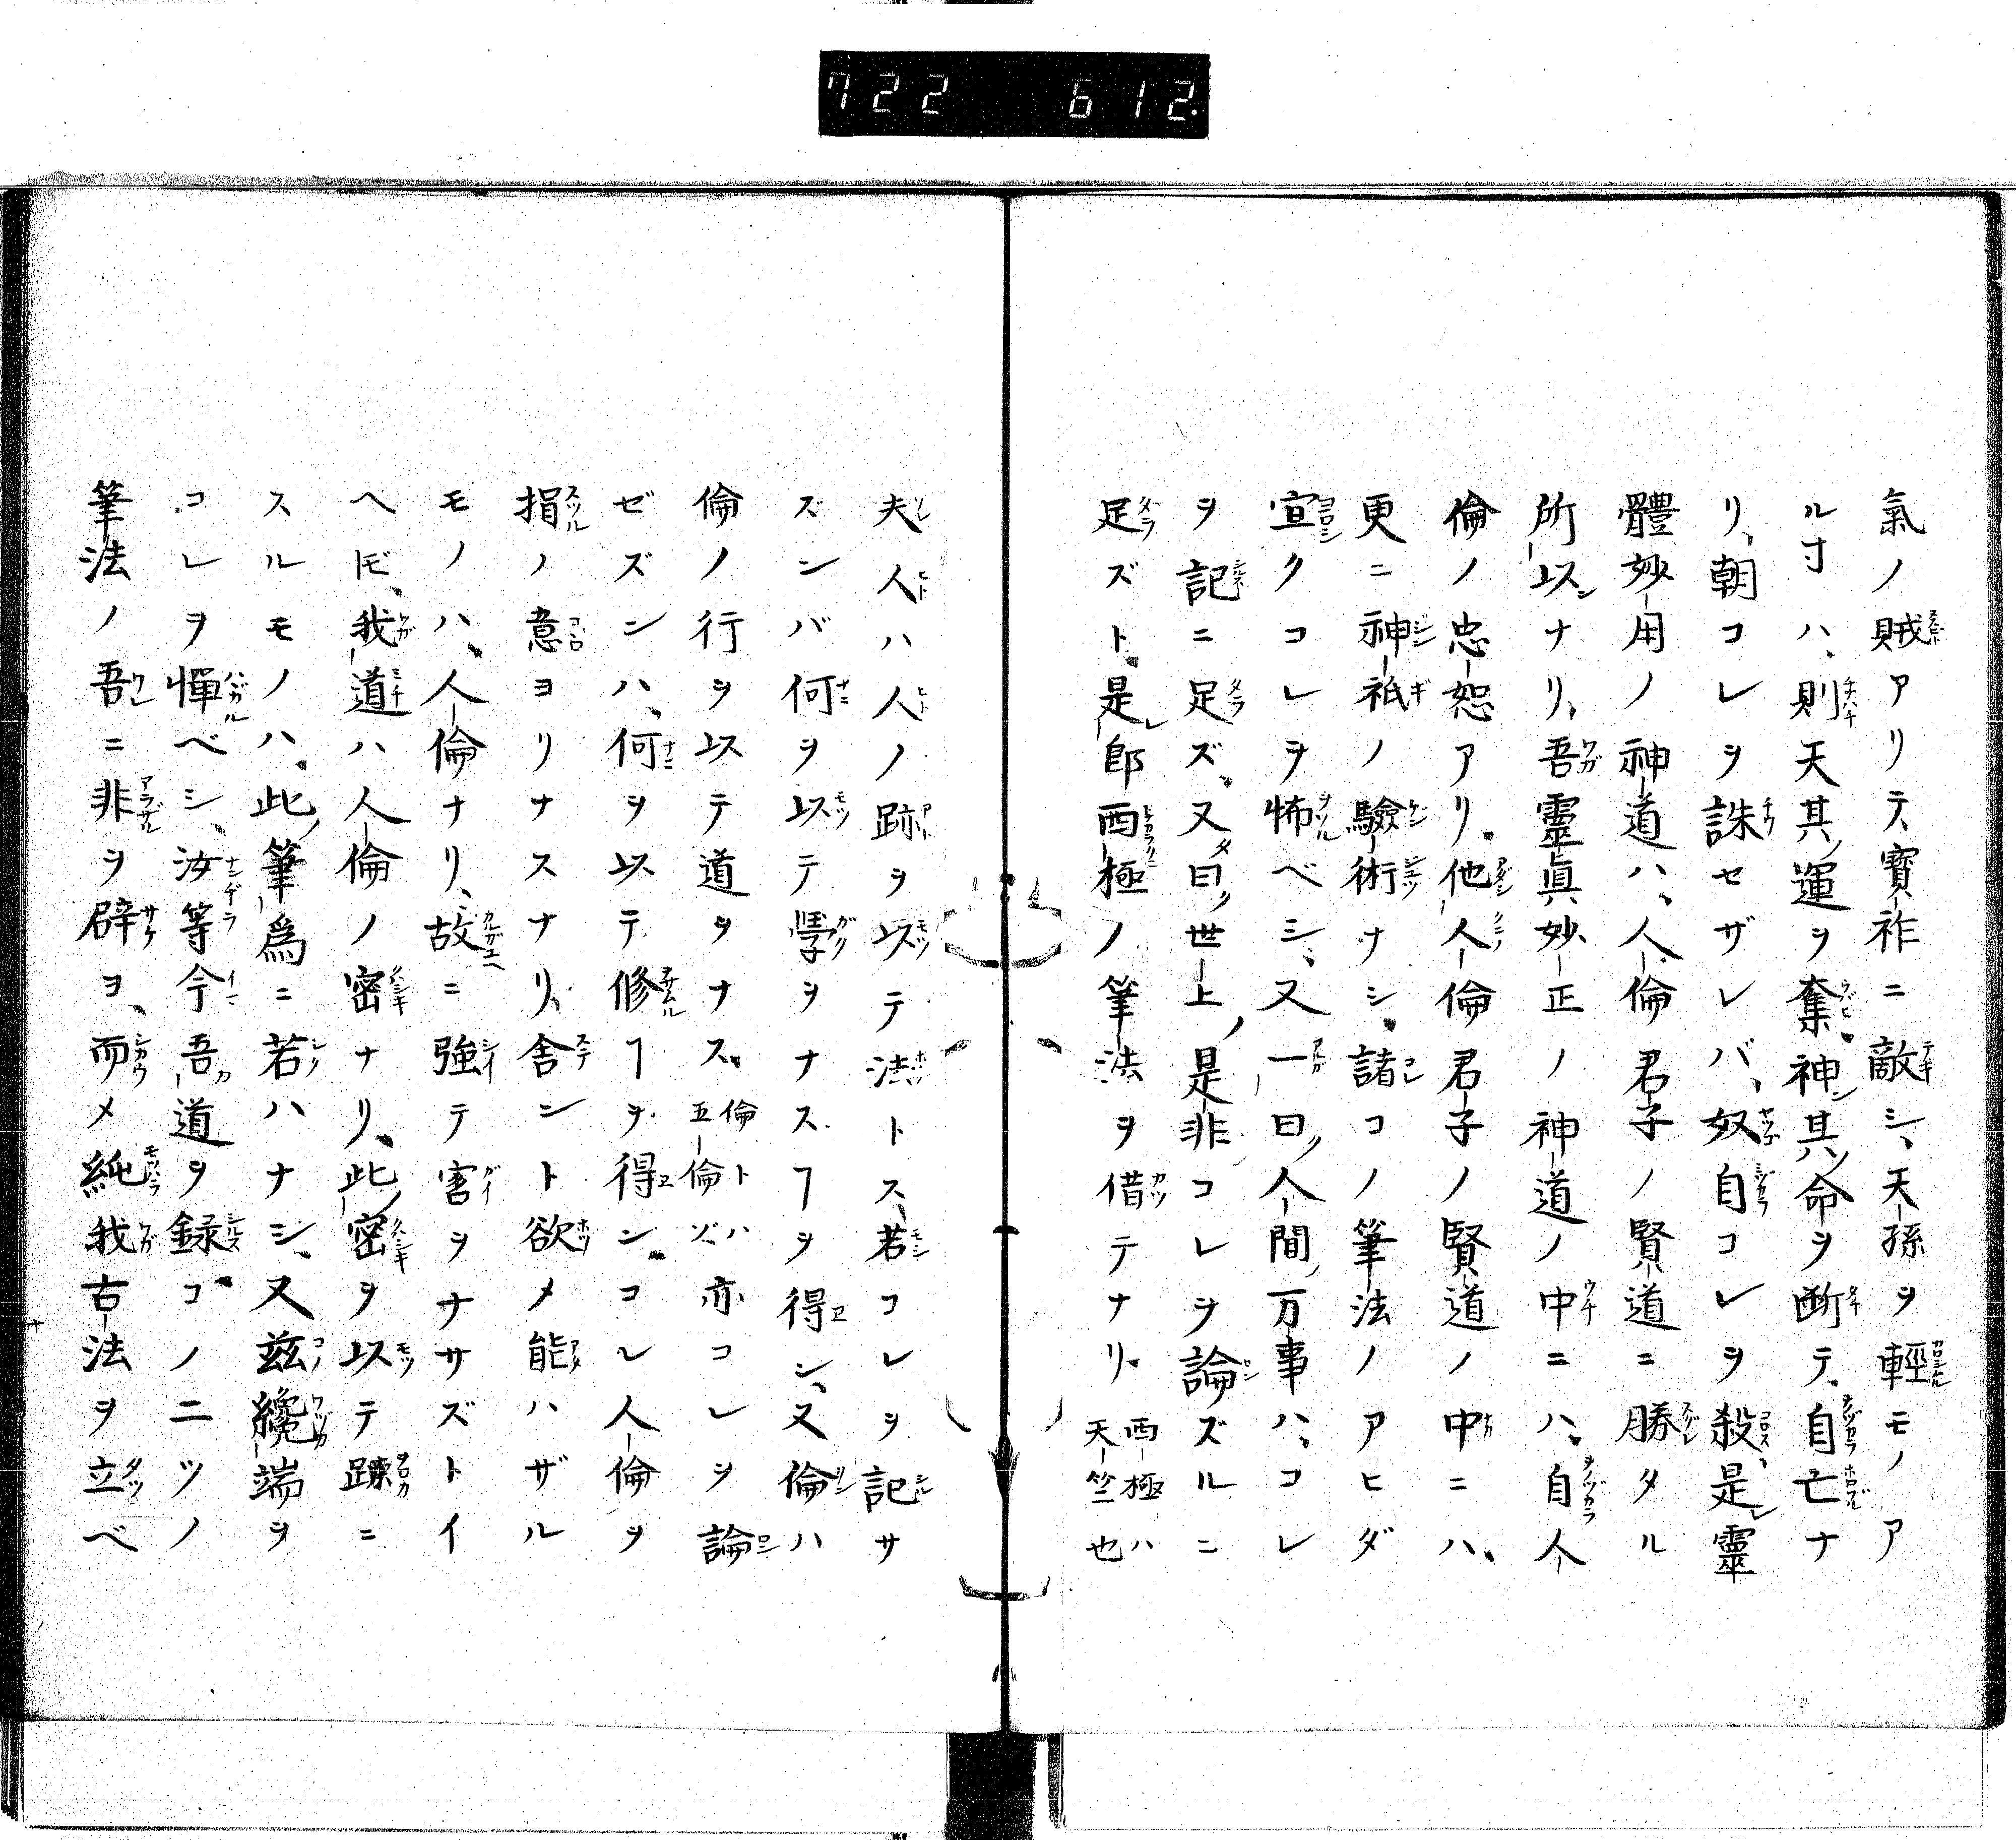 722 612
氣ノ賊アリテ、寳祚ニ敵シ、天孫ヲ輕モノア
ル寸ハ、則天其ノ運ヲ奪、神其ノ命ヲ断テ、自亡ナ
リ、朝コレヲ誅セザレバ、奴自コレヲ殺、是レ靈
體妙用ノ神道ハ、人倫君子ノ賢道ニ勝タル
所以ナリ、吾靈眞妙正ノ神道ノ中ニハ、自人
倫ノ忠恕アリ、他人倫君子ノ賢道ノ中ニハ、
更ニ神祇ノ驗術ナシ、諸コノ筆法ノアヒダ
宣クコレヲ怖ベシ、又一曰ノ人間ノ万事ハ、コレ
ヲ記ニ足ズ、又曰ノ世上ノ是非コレヲ論ズルニ
足ズト、是レ郎西極ノ筆法ヲ借テナリ、西極ハ
天竺也
夫人ハ人ノ跡ヲ以テ法トス、若コレヲ記サ
ズンバ何ヲ以テ學ヲナスヿヲ得ン、又倫ハ
倫ノ行ヲ以テ道ヲナス、倫トハ
五倫ゾ亦コレヲ論
ゼズンハ、何ヲ以テ修ヿヲ得ン、コレ人倫ヲ
捐ノ意ヨリナスナリ、舎ント欲メ能ハザル
モノハ、人倫ナリ、故ニ強テ害ヲナサズトイ
ヘ𪜈、我道ハ人倫ノ密ナリ、此ノ密ヲ以テ踈ニ
スルモノハ、此ノ筆爲ニ若ハナシ、又茲纔端ヲ
コレヲ憚ベシ、汝等今吾道ヲ録コノ二ツノ
筆法ノ吾ニ非ヲ辟ヨ、而メ純我古法ヲ立ベ